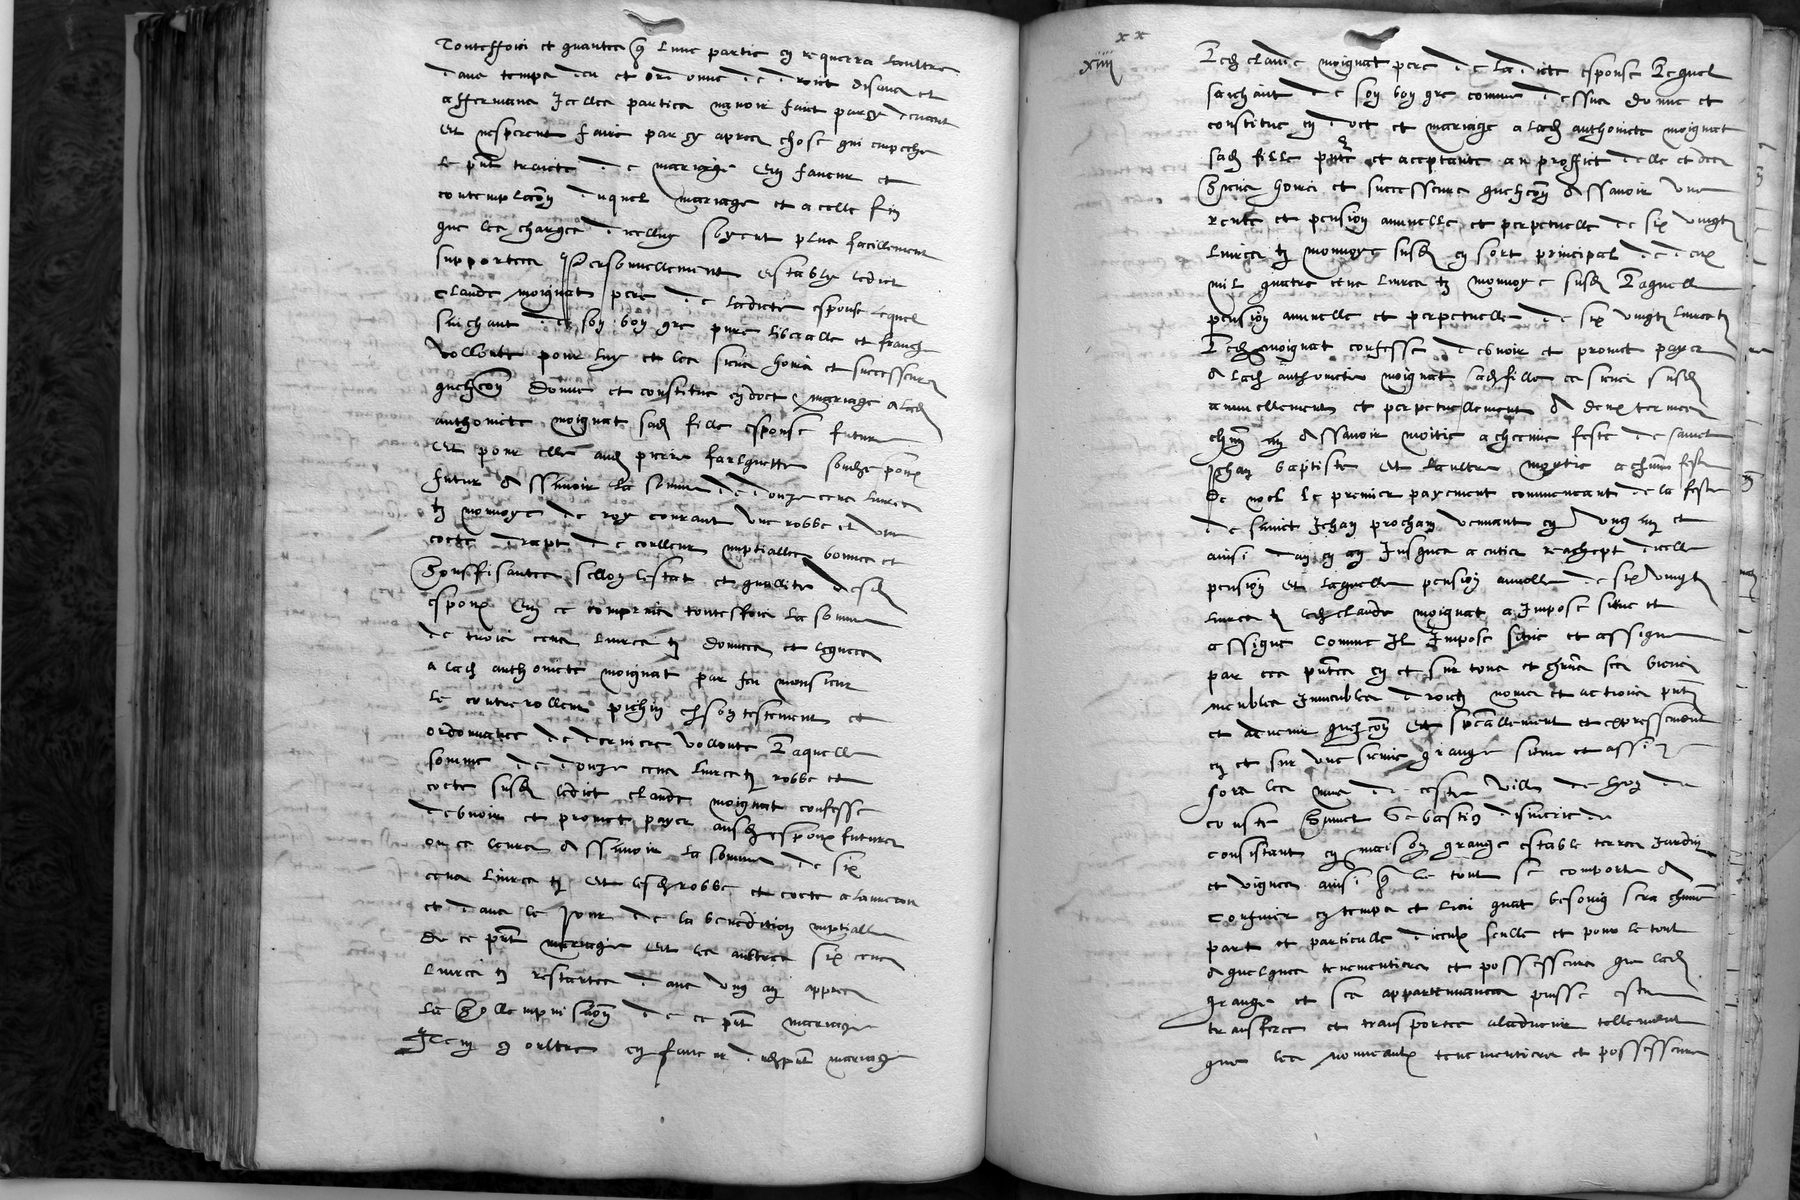 Toutesfoiz et quantes q lune partie en requerra laultre
dans temps deu et ordonne de droit disans et
affermans Icelles parties navoir faict par cy devant
Et nesperent faire par cy apres chose qui empeche
le pnt traicte de mariaige Et en faveur et
contemplaon duquel mariage et a celle fin
que les charges dicelluy soyent plus facillement
supportees personnellement estably ledict
claude moignat pere de ladicte espouse lequel
saichant de son bon gre pure liberalle et franche
vollonte pour luy et les siens hoirs et successeurs
quelzcons donne et constitue en doct & mariage a lad
anthoinette moignat sad fille espouse future
Et pour elle aud pierre farlquette sondt espoux
futur Assavoir la somme de douze cens livres
tz monnoye de roy courant une robbe et une
cotte drapt de coulleur nuptialles bonnes et
souffisantes sellon lestat et quallite desd
espoux En ce comprins toutesfois la somme
de trois cens livres tz donnees et leguees
a lad anthoinette moignat par feu monsieur
le contrerolleur pichin en son testement et
ordonnance de derniere vollonte Laquelle
somme de douze cens livres tz robbe et
cotte susd ledict claude moignat confesse
debvoir et promet payer ausd espoux futurs
ou es leurs Assavoir la somme de six
cens livres tz Et lesd robbe et cotte
et dans le jour de la benediction nuptialle
de ce pnt mariaige Et les aultres six cens
livres tz restantes dans ung an appres
la sollempnisaon de ce pnt mariaige
Item & oultre en faveur dud pnt mariage
xx
xiiii
Led claude moignat pere de ladicte espouse Lequel
saichant de son bon gre comme dessus donne et
constitue en doct et mariage a lad anthoinette moignat
sad fille pnte et acceptante au proffict delle et des
siens hoirs et successeurs quelzcons Assavoir une
rente et pension annuelle et perpetuelle de six vingtz
livres tz monnoye susd en sort principal de deux
mil quatre cens livres tz monnoye susd Laquelle
pension annuelle et perpetuelle de six vingtz livres tz
Led moignat confesse debvoir et promet payer
A lad anthoinette moignat sad fille es siens susd
annuellement et perpetuellement A deux termes
chun an Assavoir moitie a chacune feste de sainct
Jehan baptiste Et laultre moytie a chune feste
de noel le premier payement commencant de la feste
de sainct Jehan prochain venant en ung an et
ainsi dan en an Jusques a entier reachept dicelle
pension Et laquelle pension annuelle de six vingtz
livres tz led claude moignat a Impose situe et
assigne comme Il Impose situe et assigne
par ces pntes en et sur tous et chuns ses biens
meubles Immeubles droictz noms et actions pntz
et advenir quelzcons Et speallement et expressement
en et sur une sienne grange size et assize
hors les murs de ceste ville de lyon du
couste sainct Sebastien
consistant en maison grange estable terres Jardin
et vignes ainsi q le tout se comporte A
confiner en temps et lieu quat besoing sera chune
part et particulle diceulx seulle et pour le tout
A quelques tenementiers et possesseurs que lad
grange et ses appartenances puisse estre
transferee et transportee aladvenir tellement
que les nouveaulx tenementiers et possesseurs